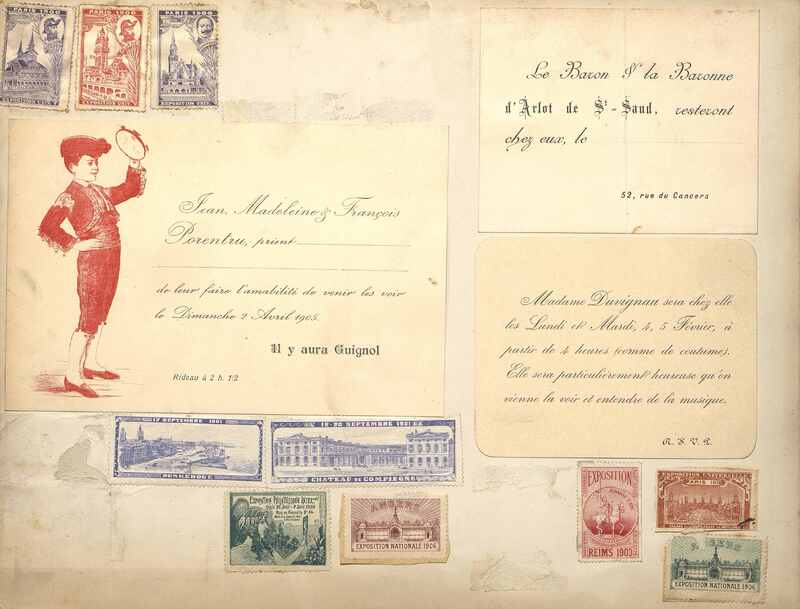 PARIS 1900
EXPOSITION UNIV.
PARIS 1900
EXPOSITION UNIV.
PARIS 1900
EXPOSITION UNIV.
Le Baron & la Baronne
d'Arlot de St-Saud, resteront
chez eux, le
52, rue du Cancera
Jean, Madeleine & François
Porentru, prient
de leur faire l'amabilité de venir les voir
le Dimanche 2 Avril 1905.
Il y aura Guignol
Rideau à 2 h. 1/2
Madame Duvignau sera chez elle
les Lundi et Mardi, 4, 5 Février, à
partir de 4 heures (comme de coutume).
Elle sera particulièrement heureuse qu'on
vienne la voir et entendre de la musique.
R. S. V. P.
17 SEPTEMBRE 1901
DUNKERQUE
18-20 SEPTEMBRE 1901
CHATEAU DE COMPIEGNE
EXPOSITION PHILATELIQUE
ANGERS
EXPOSITION NATIONALE 1906
EXPOSITION
REIMS 1903
PARIS 1900
ANGERS
EXPOSITION NATIONALE 1906